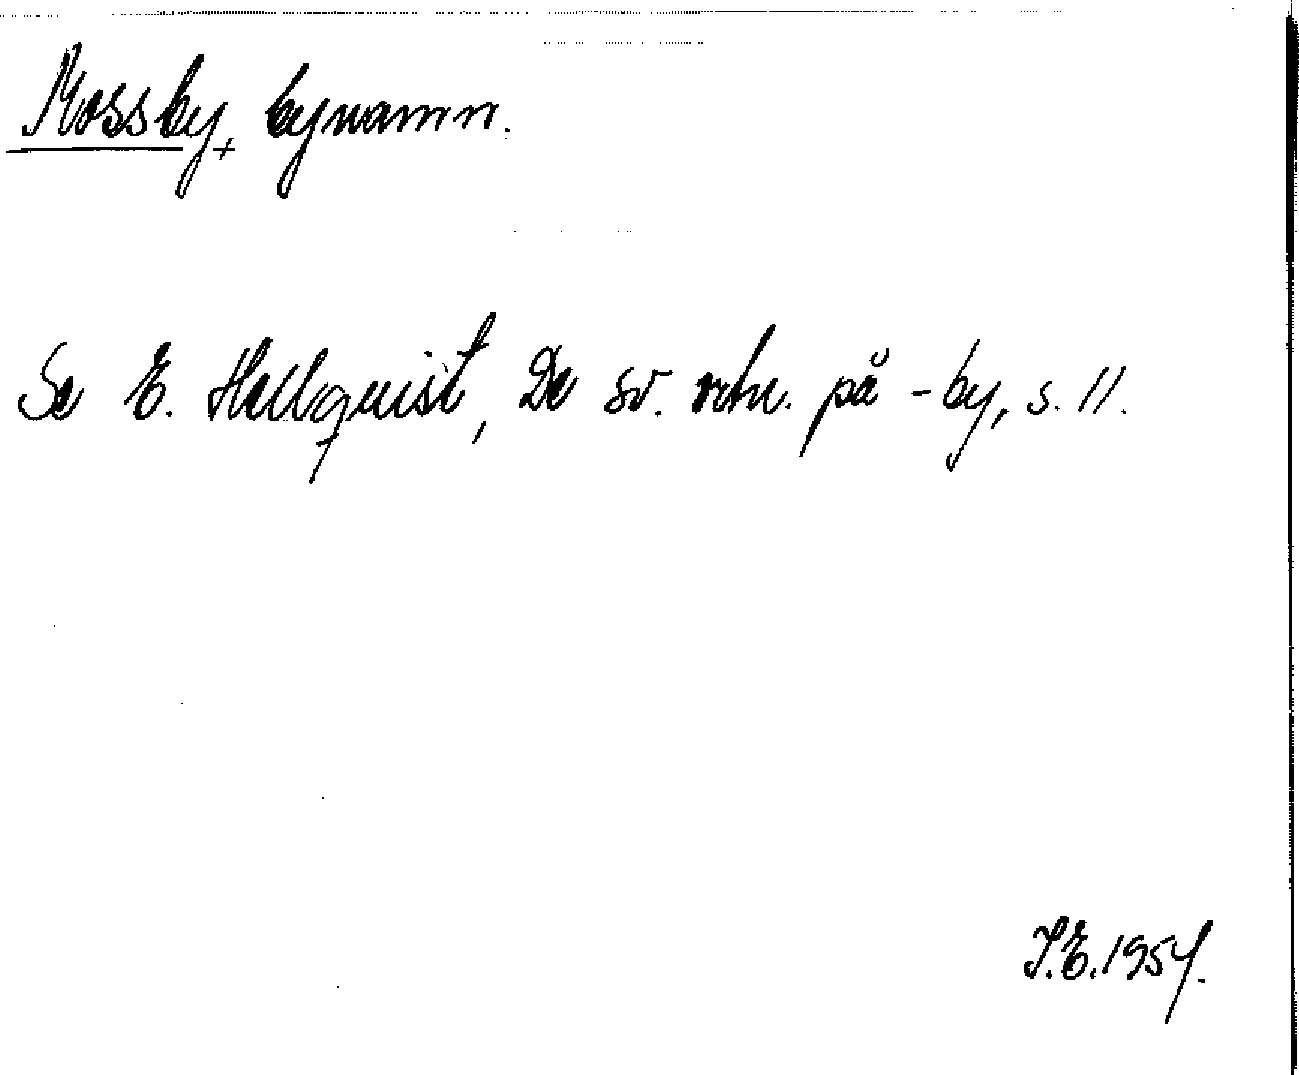 Mossby, bynamn.
Se E. Hellquist, De sv. ortn. på -by, s. 11.
I.E. 1954.